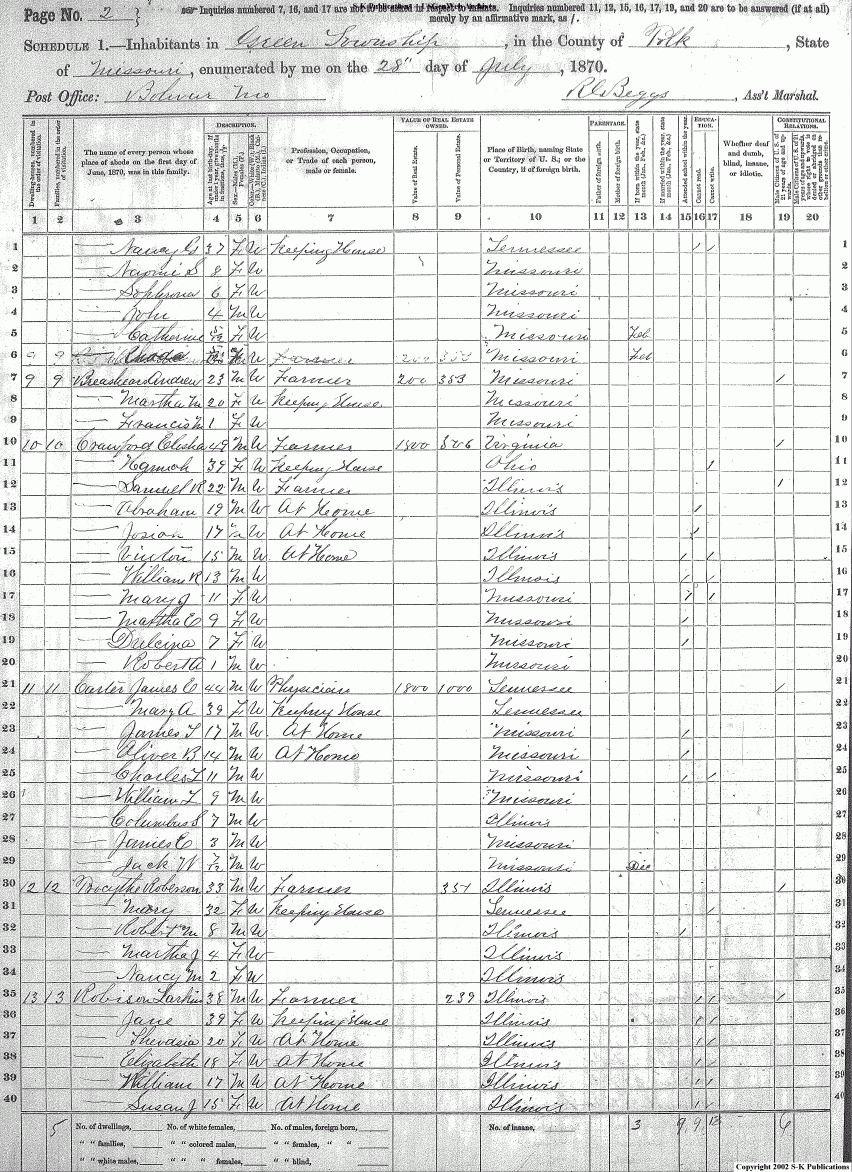 Page No. 2 } Inquiries numbered 7, 16, and 17 are not to be asked in respect to infants. Inquiries numbered 11, 12, 15, 16, 17, 19, and 20 are to be answered (if at all)
merely by an affirmative mark, as /.
SCHEDULE 1.—Inhabitants in Green Township, in the County of Polk, State
of Missouri, enumerated by me on the 28" day of July, 1870.
Post Office: Bolivar Mo R C Beggs, Ass't Marshal.
DESCRIPTION. VALUE OF REAL ESTATE OWNED. PARENTAGE. EDUCATION. CONSTITUTIONAL RELATIONS.
Dwelling-houses, numbered in the order of visitation. Families, numbered in the order of visitation. The name of every person whose place of abode on the first day of June, 1870, was in this family. Profession, Occupation, or Trade of each person, male or female. Value of Real Estate. Value of Personal Estate. Place of Birth, naming State or Territory of U. S.; or the Country, if of foreign birth. Father of foreign birth. Mother of foreign birth. Attended school within the year. Cannot read. Cannot write. Whether deaf and dumb, blind, insane, or idiotic.
1 2 3 4 5 6 7 8 9 10 11 12 13 14 15 16 17 18 19 20
1 — Nancy G 37 F W Keeping House Tennessee / / 1
2 — Naomi S 8 F W Missouri 2
3 — Sophrona 6 F W Missouri 3
4 — John 4 M W Missouri 4
5 — Catherine 5/12 F W Missouri Feb 5
6 9 9 Farmer 200 353 Missouri Feb 6
7 9 9 Breashears Andrew 23 M W Farmer 200 353 Missouri / 7
8 — Martha M 20 F W Keeping House Missouri 8
9 — Francis M 1 F W Missouri 9
10 10 10 Crawford Elisha 49 M W Farmer 1800 806 Virginia / 10
11 — Hannah 39 F W Keeping House Ohio / 11
12 — Samuel R 22 M W Farmer Illinois / 12
13 — Abraham 19 M W At Home Illinois / 13
14 — Josiah 17 M W At Home Illinois / 14
15 — Vinton 15 M W At Home Illinois / / 15
16 — William R 13 M W Illinois / / 16
17 — Mary J 11 F W Missouri / / 17
18 — Martha E 9 F W Missouri / 18
19 — Dulcina 7 F W Missouri / 19
20 — Robert A 1 M W Missouri 20
21 11 11 Carter James E 44 M W Physician 1800 1000 Tennessee / 21
22 — Mary A 39 F W Keeping House Tennessee 22
23 — James T 17 M W At Home Missouri / 23
24 — Oliver B 14 M W At Home Missouri / 24
25 — Charles L 11 M W Missouri / / 25
26 — William L 9 M W Missouri 26
27 — Columbus S 7 M W Illinois 27
28 — James E 3 M W Missouri 28
29 — Jack W 7/12 M W Missouri Dec 29
30 12 12 Roberson 33 M W Farmer 351 Illinois / 30
31 — Mary 32 F W Keeping House Tennessee / 31
32 — Robt M 8 M W Illinois / 32
33 — Martha J 4 F W Illinois 33
34 — Nancy M 2 F W Illinois 34
35 13 13 Robison Larkin 38 M W Farmer 239 Illinois / / / 35
36 — Jane 39 F W Keeping House Illinois / / 36
37 — 20 F W At Home Illinois / / 37
38 — Elizabeth 18 F W At Home Illinois / / 38
39 — William 17 M W At Home Illinois / / 39
40 — Susan J 15 F W At Home Illinois / / 40
5 No. of dwellings, No. of white females, No. of males, foreign born, No. of insane, 3 9 9 13 6
" " families, " " colored males, " " females, " "
" " white males, " " " females, " " blind,
Copyright 2002 S-K Publications